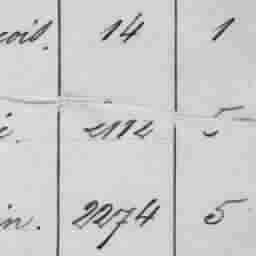 coil. 14 1
i. 2112 5
in. 2274 5